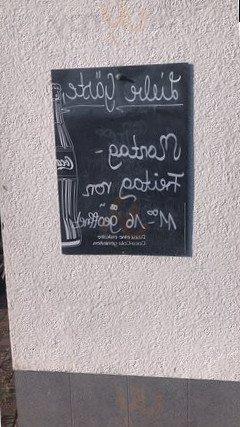 Liebe Gäste,
Montag -
Freitag von
11⁰⁰-16⁰⁰ geöffnet
Dazu eine eiskalte
Coca-Cola genießen.
Coca